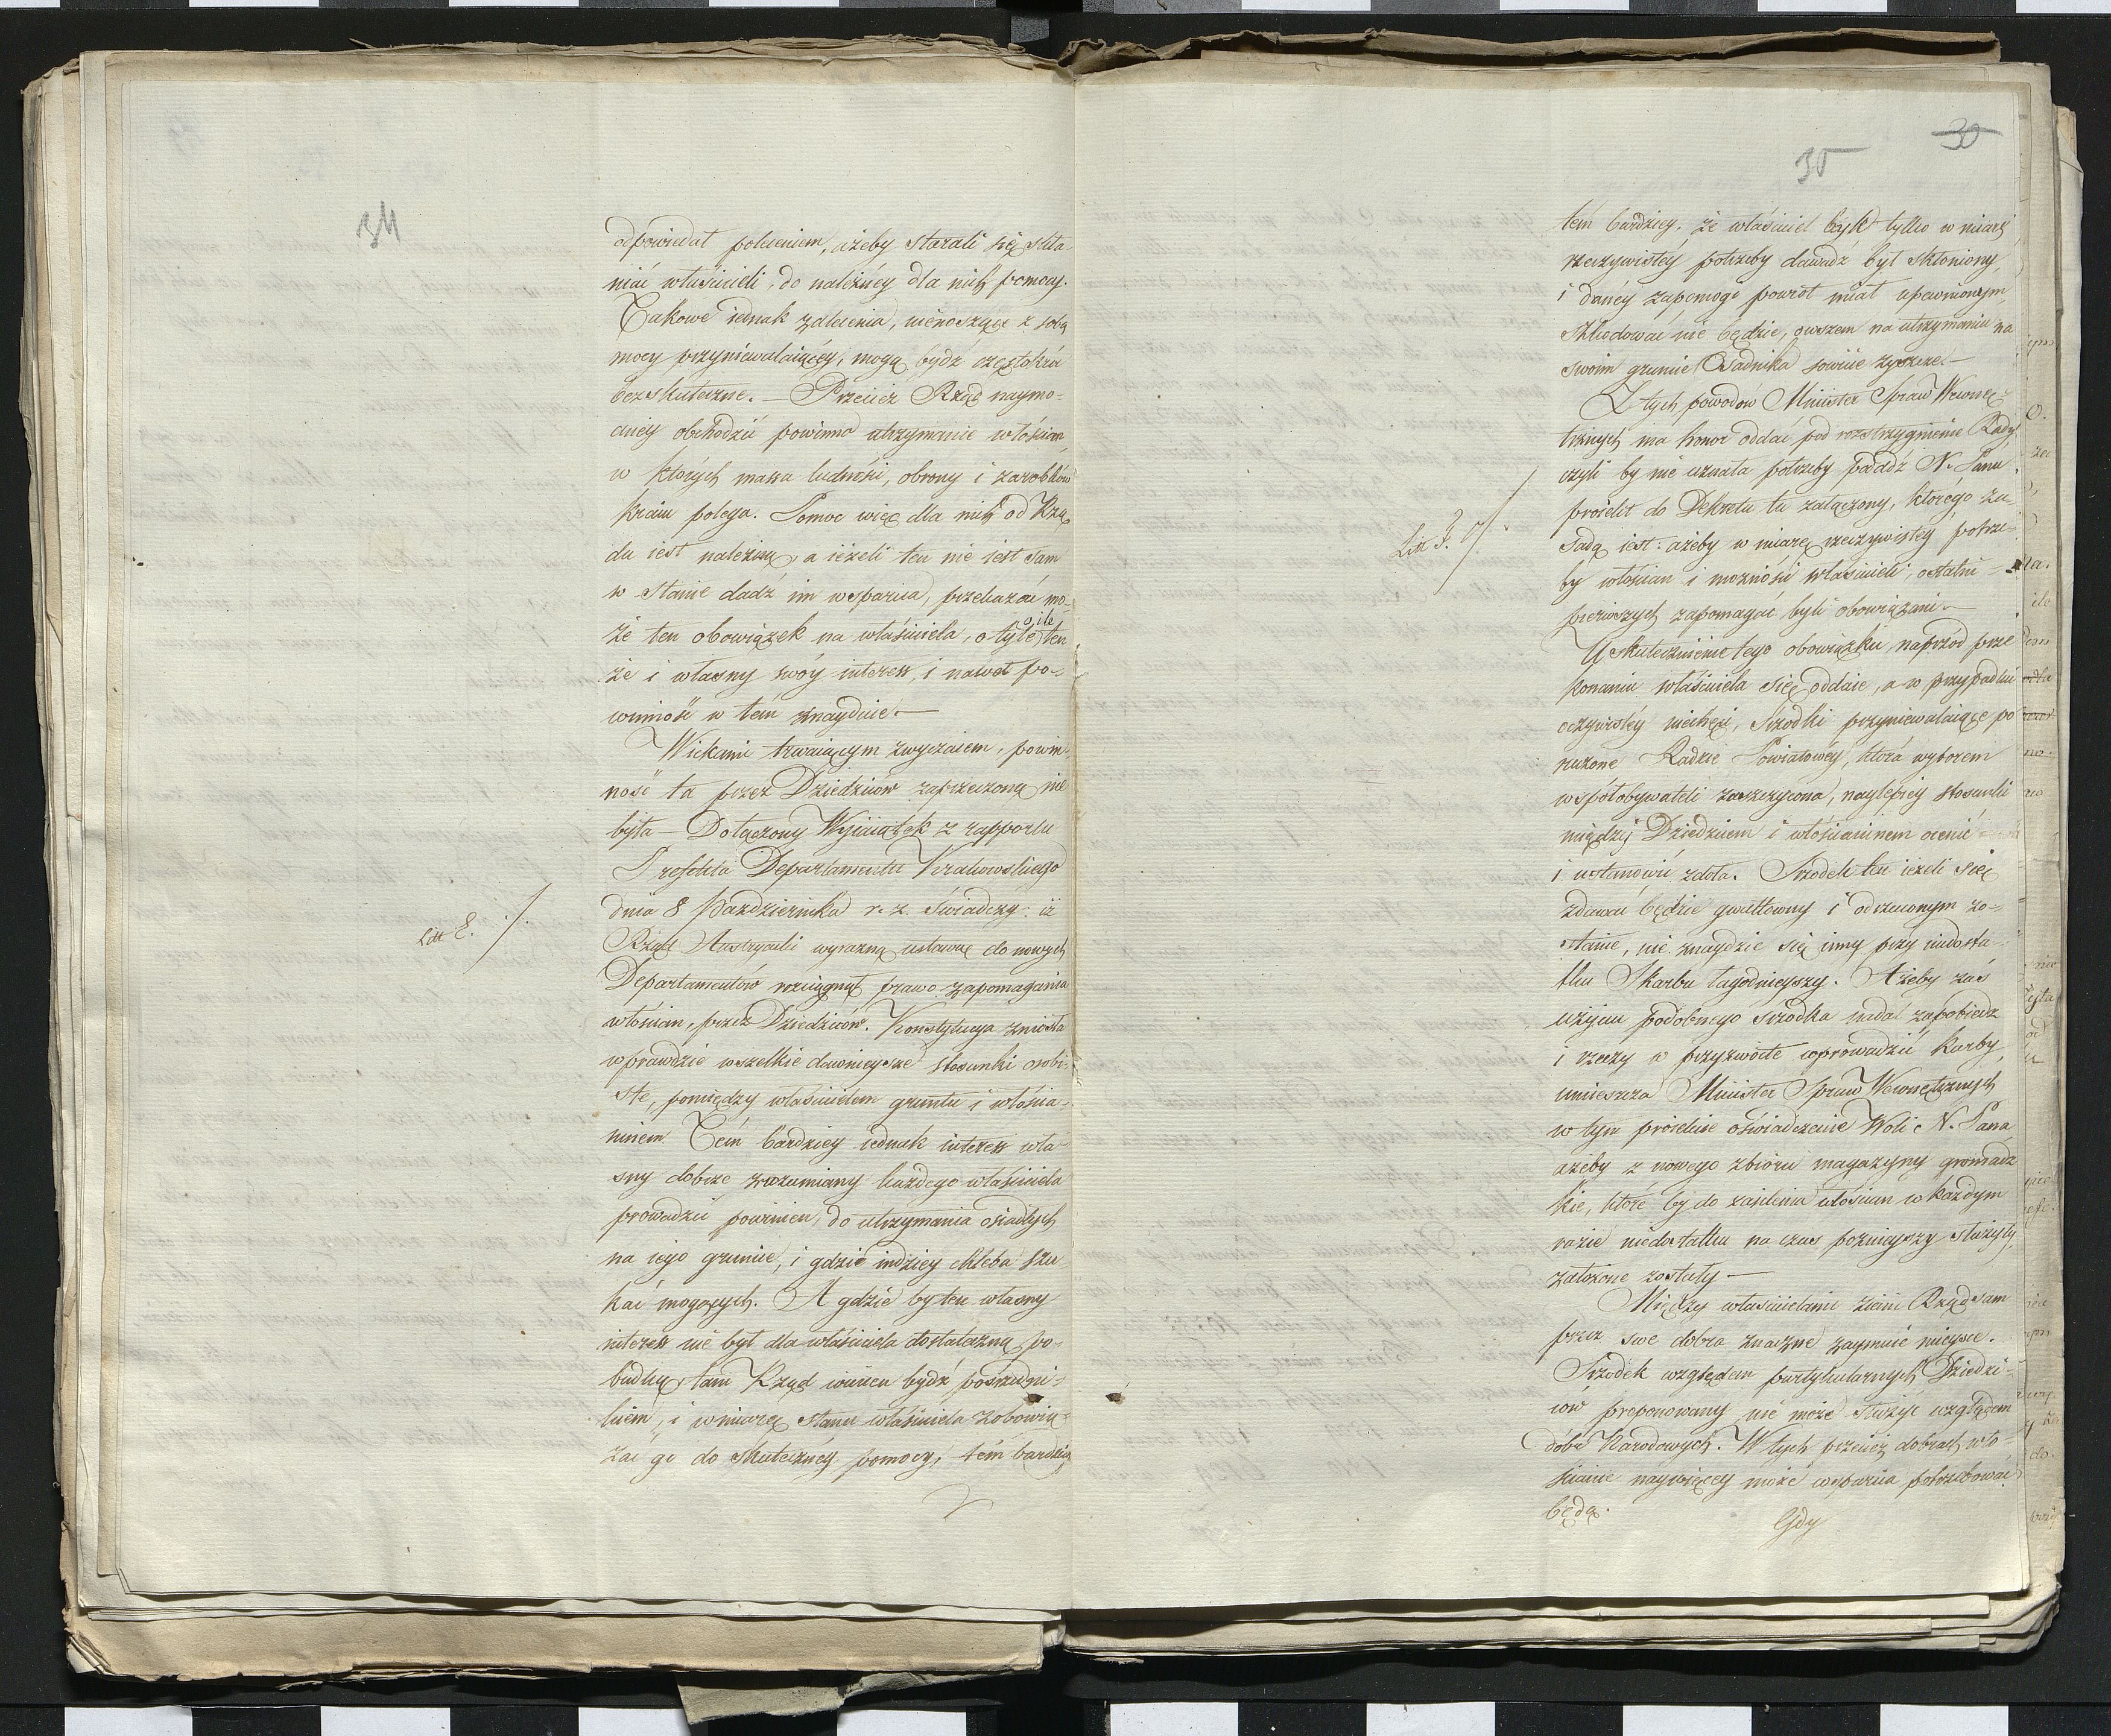 34
odpowiedał poleceniem, ażeby starali się skła-
niać właścicieli, do należnéy dla nich pomocy.
Takowe iednak zalecenia, nienoszące z sobą
mocy przyniewalaiącéy, mogą bydź częstokroć
bezskuteczne. — Przecież Rząd naymo-
cniéy obchodzić powinno utrzymanie włościan,
w których massa ludności, obrony i zarobków
kraiu polega. Pomoc więc dla nich od Rzą-
du iest należną, a ieżeli ten nie iest sam
w stanie dadź im wsparcia, przekazać mo-
że ten obowiązek na właściciela, o tyle, o ile ten
że i własny swóy interess, i nawet po-
winność w tém znayduie. —
Wiekami trwaiącym zwyczaiem, powin-
ność ta przez Dziedziców zaprzeczoną nie
była — Dołączony Wyiątek z rapportu
Prefekta Departamentu Krakowskiego
Litt E. ./.
dnia 8 Października r. z. świadczy: iż
Rząd Austryacki wyrazną ustawę do nowych
Departamentów rozciągnął prawo zapomagania
włościan, przez Dziedziców. Konstytucya zniosła
wprawdzie wszelkie dawnieysze stosunki osobi-
ste, pomiędzy właścicielem gruntu i włościa-
ninem. Tém bardziey iednak interess wła-
sny dobrze zrozumiany każdego właściciela
prowadzić powinien, do utrzymania osiadłych
na iego gruncie, i gdzie indziey chleba szu-
kać mogących. A gdzie by ten własny
interess nie był dla właściciela dostateczną po-
budką, tam Rząd winien bydź pośredni-
kiem, i w miarę stanu właściciela zobowią-
zać go do skutecznéy pomocy, tém bardziey
30
35
tém bardziey, że właściciel tylko w miarę
rzeczywistéy potrzeby dawadź był skłoniony,
i danéy zapomogi powrot miał upewnionym,
szkodować nie będzie, owszem na utrzymaniu na
swoim gruncie Osadnika sowicie zyszcze. —
Z tych powodów Minister Spraw Wewnę-
trznych ma honor oddać pod rozstrzygnienie Rady
czyli by nie uznała potrzeby podadź N. Panu
Litt F. ./.
proiekt do Dekretu tu załączony, którego za-
sadą iest: ażeby w miarę rzeczywistéy potrze-
by włościan i możności właścicieli, ostatni
pierwszych zapomagać byli obowiązani. —
Uskutecznienie tego obowiązku, naprzód prze-
konaniu właściciela się oddaie, a w przypadku
oczywistéy niechęci, srzodki przyniewalaiące po
ruzone Radzie Powiatowéy, która wyborem
współobywateli zaszczycona, naylepiey stosunki
między Dziedzicem i włościaninem ocenić
i ustanowić zdoła. Srzodek ten ieżeli się
zdawać będzie gwałtowny i odrzuconym zo-
stanie, nie znaydzie się inny przy niedosta-
tku Skarbu łagodnieyszy. Ażeby zaś
użyciu podobnego srzodka nadal zapobiedz
i rzeczy w przyzwoite wprowadzić karby,
umieszcza Minister Spraw Wewnętrznych
w tym proiekcie oświadczenie Woli N. Pana
ażeby z nowego zbioru magazyny gromadz
kie, które by do zasilenia włościan w każdym
razie niedostatku na czas poznieyszy służyły,
założone zostały —
Między właścicielami ziemi Rząd sam
przez swe dobra znaczne zaymuie mieysce.
Srzodek względem partykularnych Dziedzi-
ców proponowany nie może służyć względem
dóbr Narodowych. W tych przecież dobrach wło-
ścianie naywięcey może wsparcia potrzebować
będą.
Gdy